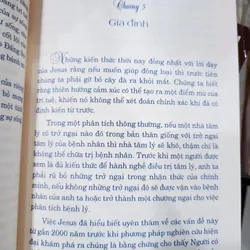 Chương 5
Gia đình
Những kiến thức thời nay đồng nhất với lời dạy
của Jesus rằng nếu muốn giúp đồng loại thì trước tiên
chúng ta phải gỡ bỏ cây đà ra khỏi mắt. Chúng ta biết
rằng thiên hướng cảm xúc có thể tạo ra một điểm mù của
trí tuệ, khiến nó không thể xét đoán chính xác khi đã có
định kiến.
Trong một phân tích thông thường, nếu một nhà tâm
lý có trở ngại nào đó trong bản thân giống với trở ngại
tâm lý của bệnh nhân thì nhà tâm lý sẽ khó, thậm chí là
không thể chữa trị bệnh nhân. Trước khi một người được
xem là đủ kiến thức để hành nghề điều trị tâm lý, anh ta
phải rũ bỏ những trở ngại trong nhận thức của chính
mình, nếu không những trở ngại đó sẽ được vận vào bệnh
nhân của anh ta hoặc trở thành một chướng ngại cho việc
phân tích bệnh lý.
Việc Jesus đã hiểu biết uyên thâm về các vấn đề này
từ gần 2000 năm trước khi phương pháp nghiên cứu hiện
đại khám phá ra chúng là bằng chứng cho thấy Người có